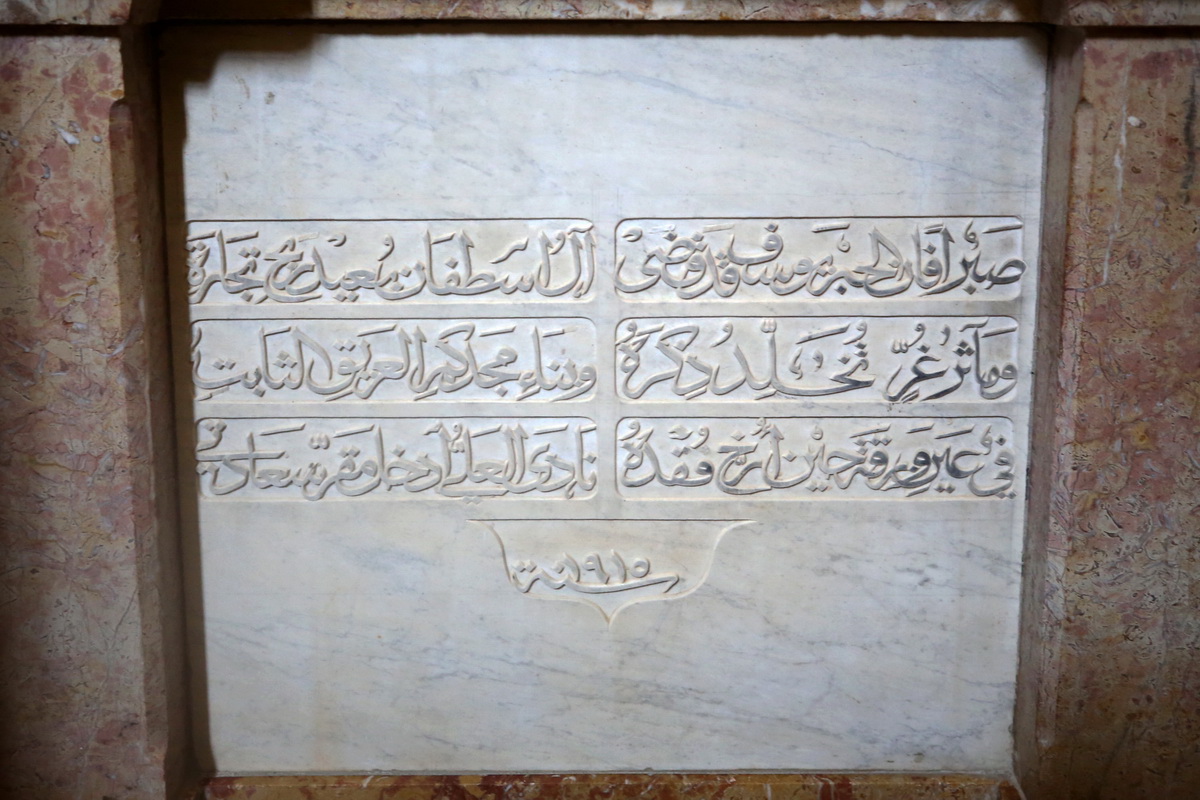 صبرًا فان الحبر يوسف قد قضى آل اسطفان سعيد ربح تجارة
ومآثر غرّ تُخلّد ذكرهُ وبناءِ مجدكم العريق الثابتِ
في عين ورقة حين أرخ فقدهُ نادى العليُّ ادخل مقرّ سعادتي
سنة ١٩١٥